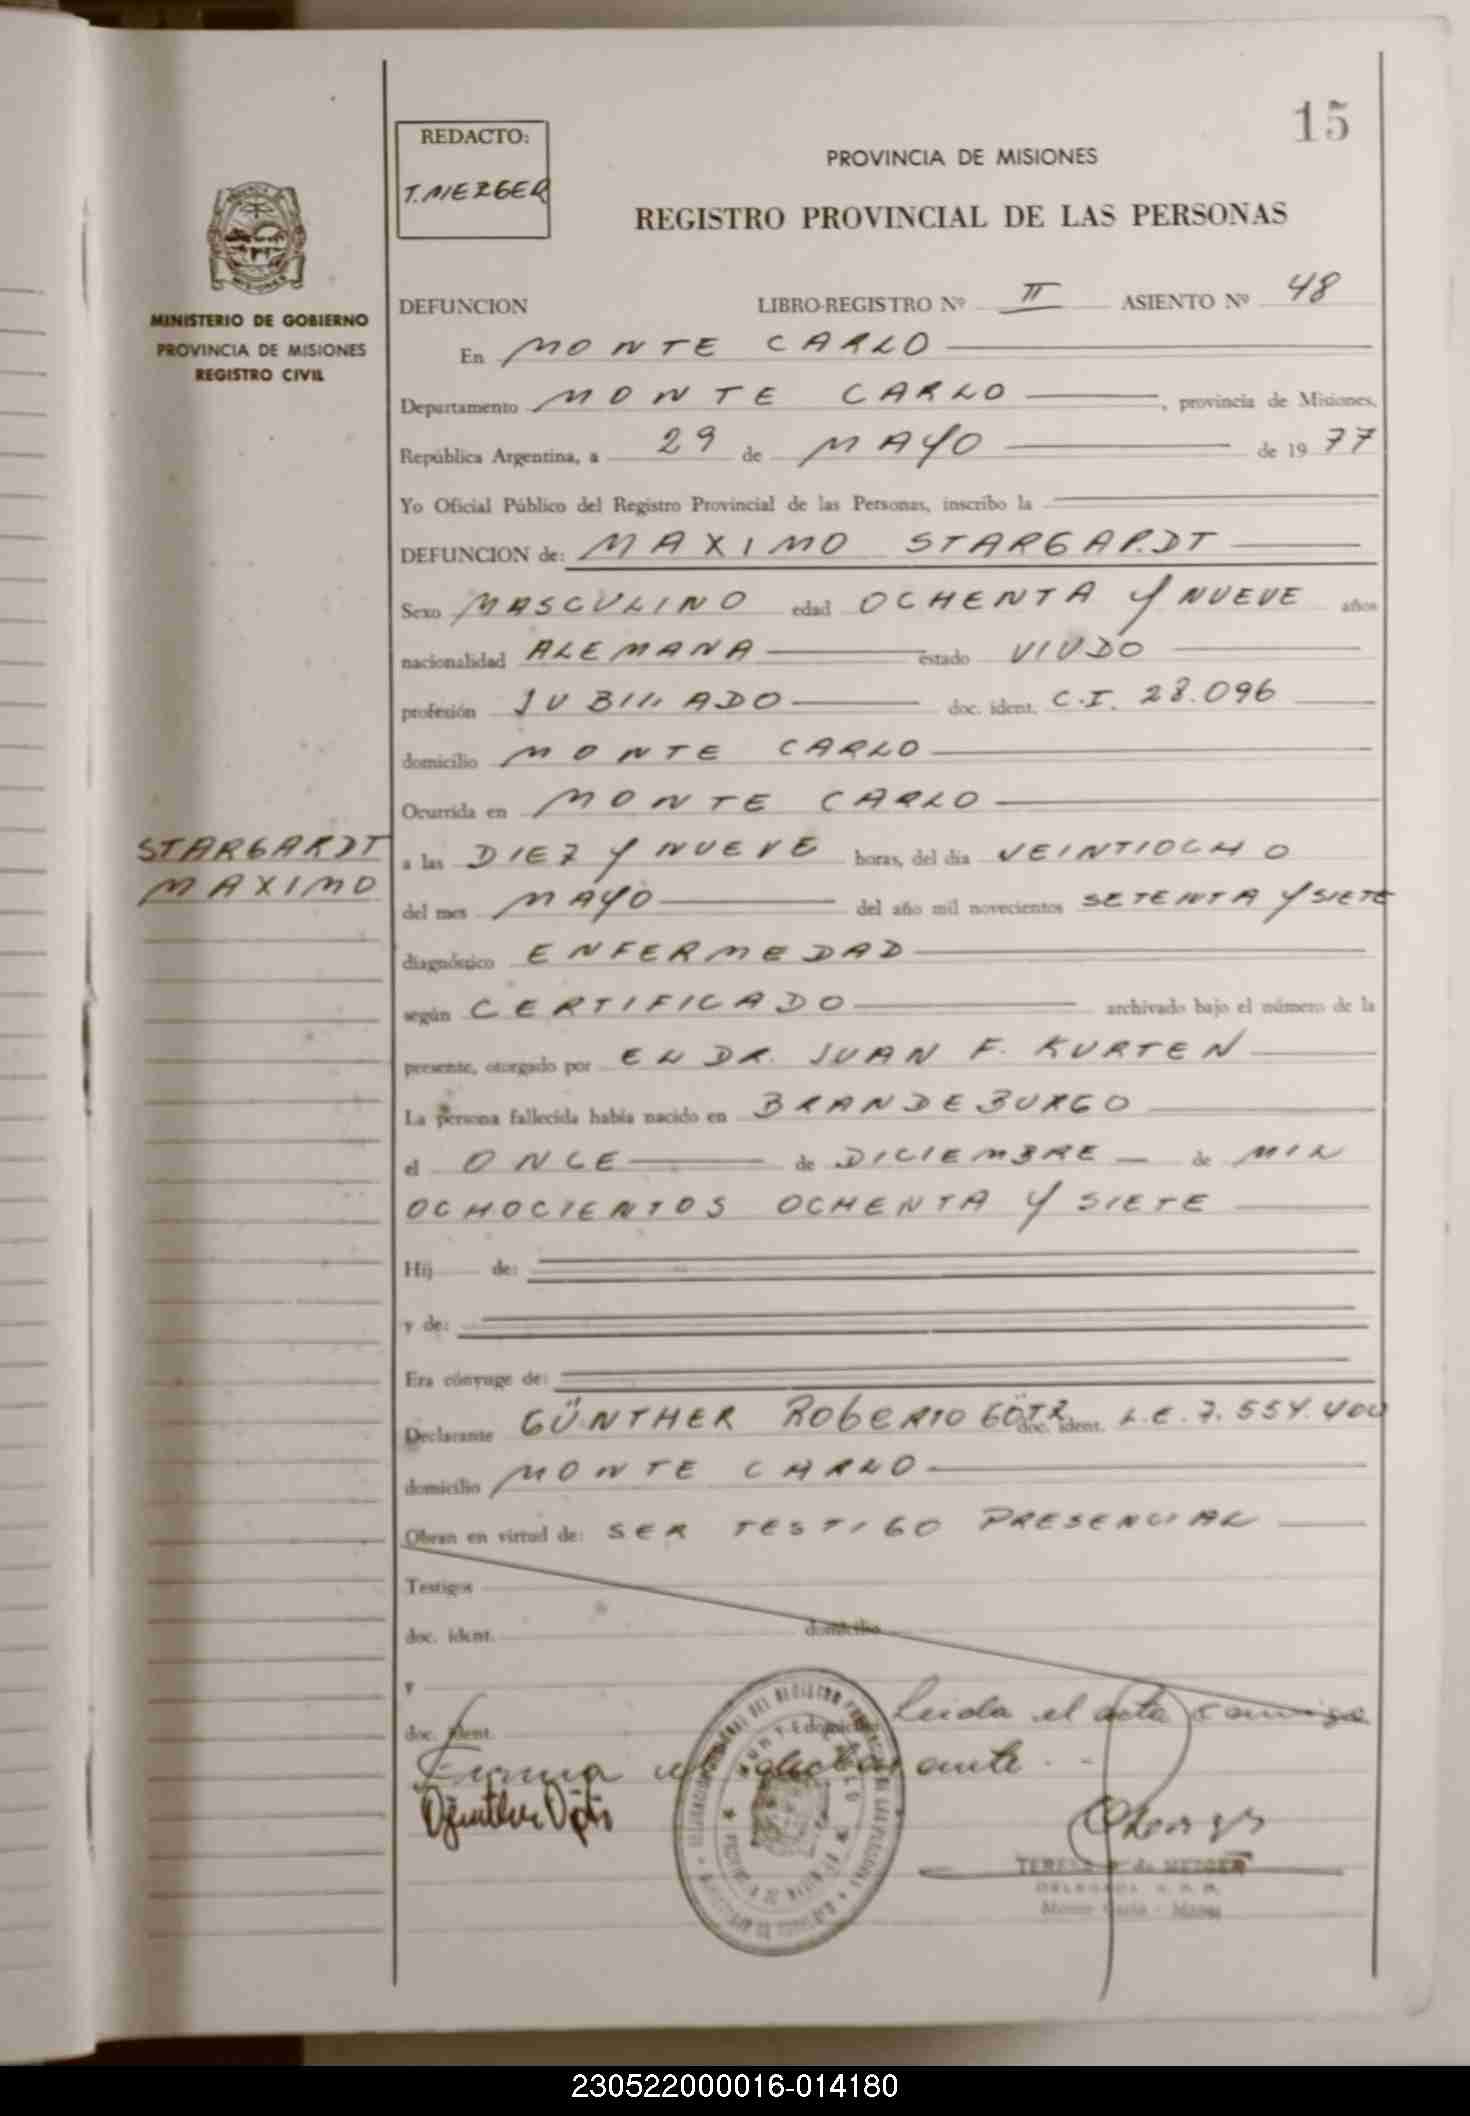 15
REDACTO:
T. MEZGER
PROVINCIA DE MISIONES
REGISTRO PROVINCIAL DE LAS PERSONAS
MINISTERIO DE GOBIERNO
PROVINCIA DE MISIONES
REGISTRO CIVIL
DEFUNCION LIBRO-REGISTRO Nº II ASIENTO Nº 48
En MONTE CARLO
Departamento MONTE CARLO, provincia de Misiones,
República Argentina, a 29 de MAYO de 1977
Yo Oficial Público del Registro Provincial de las Personas, inscribo la
DEFUNCION de: MAXIMO STARGARDT
Sexo MASCULINO edad OCHENTA Y NUEVE años
nacionalidad ALEMANA estado VIUDO
profesión JUBILADO doc. ident. C.I. 28.096
domicilio MONTE CARLO
Ocurrida en MONTE CARLO
STARGARDT
MAXIMO
a las DIEZ Y NUEVE horas, del día VEINTIOCHO
del mes MAYO del año mil novecientos SETENTA Y SIETE
diagnóstico ENFERMEDAD
según CERTIFICADO archivado bajo el número de la
presente, otorgado por EL DR. JUAN F. KURTEN
La persona fallecida había nacido en BRANDEBURGO
el ONCE de DICIEMBRE de MIL
OCHOCIENTOS OCHENTA Y SIETE
Hij de:
y de:
Era cónyuge de:
Declarante GÜNTHER ROBERTO GÖTZ doc. ident. L.E. 7.554.400
domicilio MONTE CARLO
Obran en virtud de: SER TESTIGO PRESENCIAL
Testigos
doc. ident. domicilio
y
Leida el acta
doc. ident. domicilio
Firma declarante
TERESA de MEZGER
DELEGADA
230522000016-014180